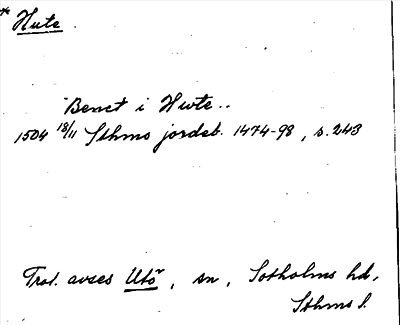 * Hute.
Benct i Hwte..
1504 18/11 Sthms jordeb. 1474-98, s. 243
Trol. avses Utö, sn, Sotholms hd,
Sthms l.